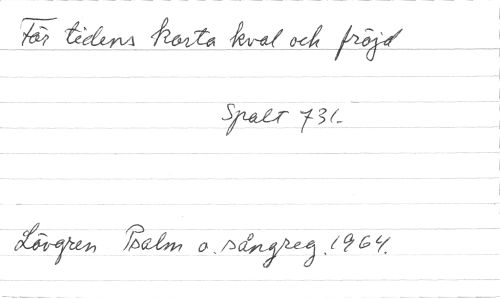 För tidens korta kval och fröjd
Spalt 731.
Lövgren Psalm o. sångreg. 1964.